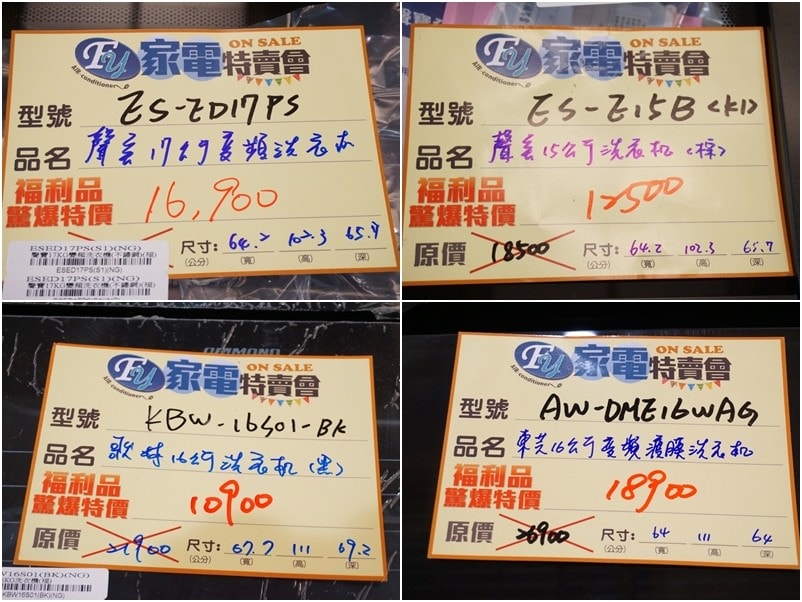 Fy 家電特賣會 ON SALE
AIR conditioner
型號 ES-ED17PS
品名 聲宝17公斤变頻洗衣机
福利品
驚爆特價 16,900
尺寸: 64.2 102.3 65.7
(公分) (寬) (高) (深)
ESED17PS(S1)(NG)
聲寶17KG變頻洗衣機(不鏽鋼)(福)
ESED17PS(S1)(NG)
ESED17PS(S1)(NG)
聲寶17KG變頻洗衣機(不鏽鋼)(福)
Fy 家電特賣會 ON SALE
AIR conditioner
型號 ES-E15B<K1>
品名 聲宝15公斤洗衣机(棕)
福利品
驚爆特價 12500
原價 18500 尺寸: 64.2 102.3 65.7
(公分) (寬) (高) (深)
Fy 家電特賣會 ON SALE
AIR conditioner
型號 KBW-16S01-BK
品名 歌林16公斤洗衣机(黑)
福利品
驚爆特價 10900
原價 21900 尺寸: 67.7 111 69.2
(公分) (寬) (高) (深)
W16S01(BK)(NG)
KG洗衣機(福)
KBW16S01(BK)(NG)
Fy 家電特賣會 ON SALE
AIR conditioner
型號 AW-DME16WAG
品名 東芝16公斤变頻鍍膜洗衣机
福利品
驚爆特價 18900
原價 26900 尺寸: 64 111 64
(公分) (寬) (高) (深)